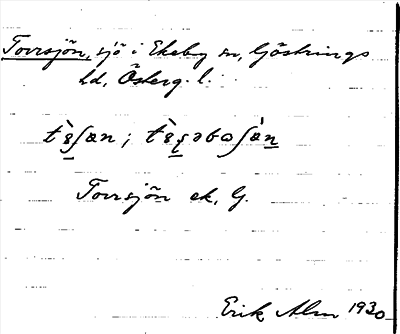 Torrsjön, sjö i Ekeby sn, Göstrings
hd, Österg. l.
Torrsjön ek, G.
Erik Alm 1930